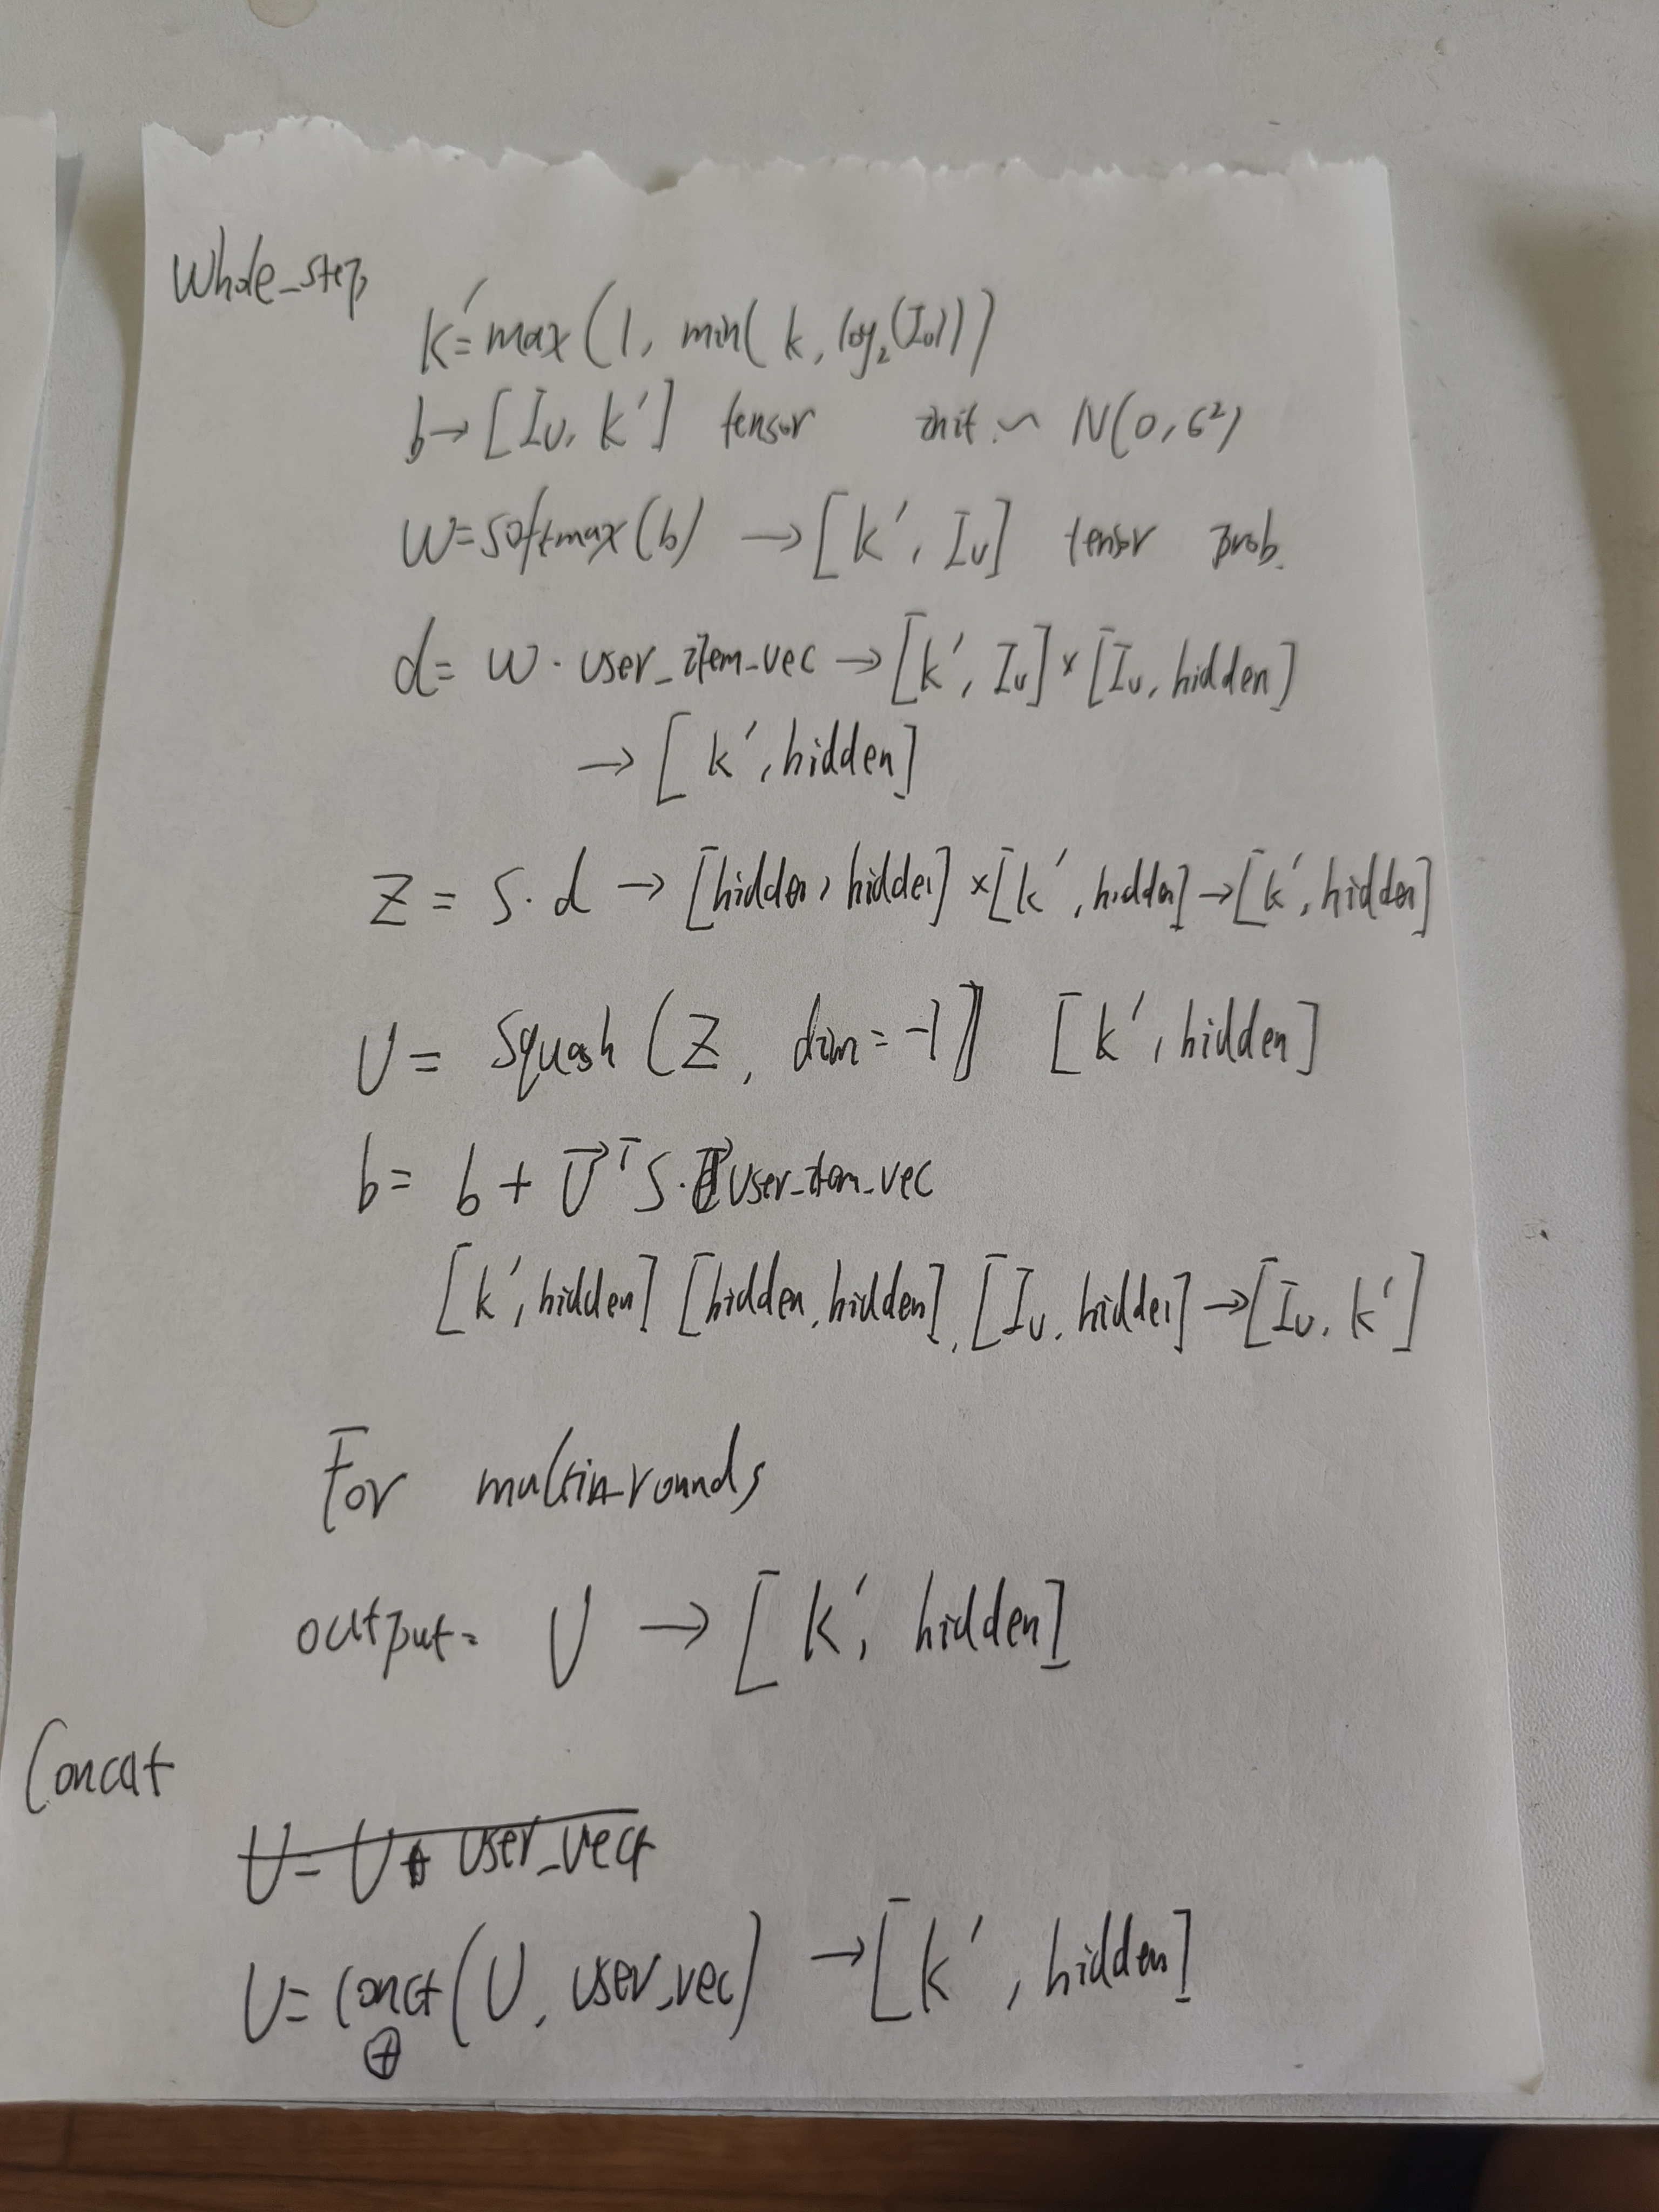 Whole_step
k'=max(1, min(k, log₂(Iᵤ)))
b→[Iᵤ, k'] tensor init ~ N(0, σ²)
w=softmax(b) →[k', Iᵤ] tensor prob.
d= w·user_item_vec →[k', Iᵤ]×[Iᵤ, hidden]
→[k', hidden]
Z = S·d →[hidden, hidden]×[k', hidden]→[k', hidden]
U = Squash(Z, dim=-1) [k', hidden]
b= b + U⃗ᵀS·user_item_vec
[k', hidden] [hidden, hidden], [Iᵤ, hidden]→[Iᵤ, k']
For multin_rounds
output= U →[k', hidden]
Concat
U= U user_vect
U= Conct(U, user_vec) →[k', hidden]
⊕